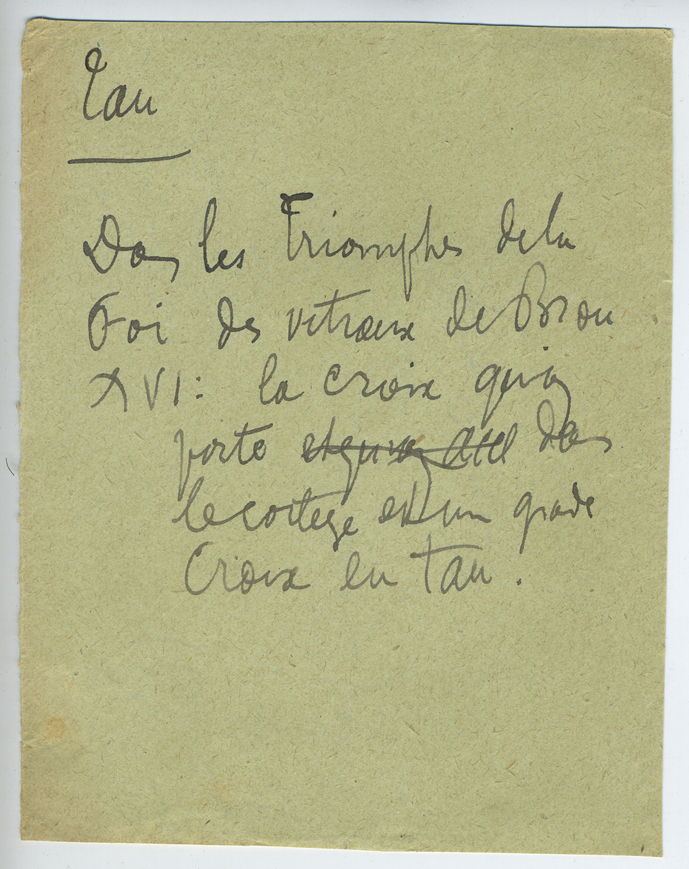 Tau
Dans les Triomphes de la
Foi des vitraux de Brou
XVI: la croix qu'on
porte dans
le cortège est une grande
Croix en tau.